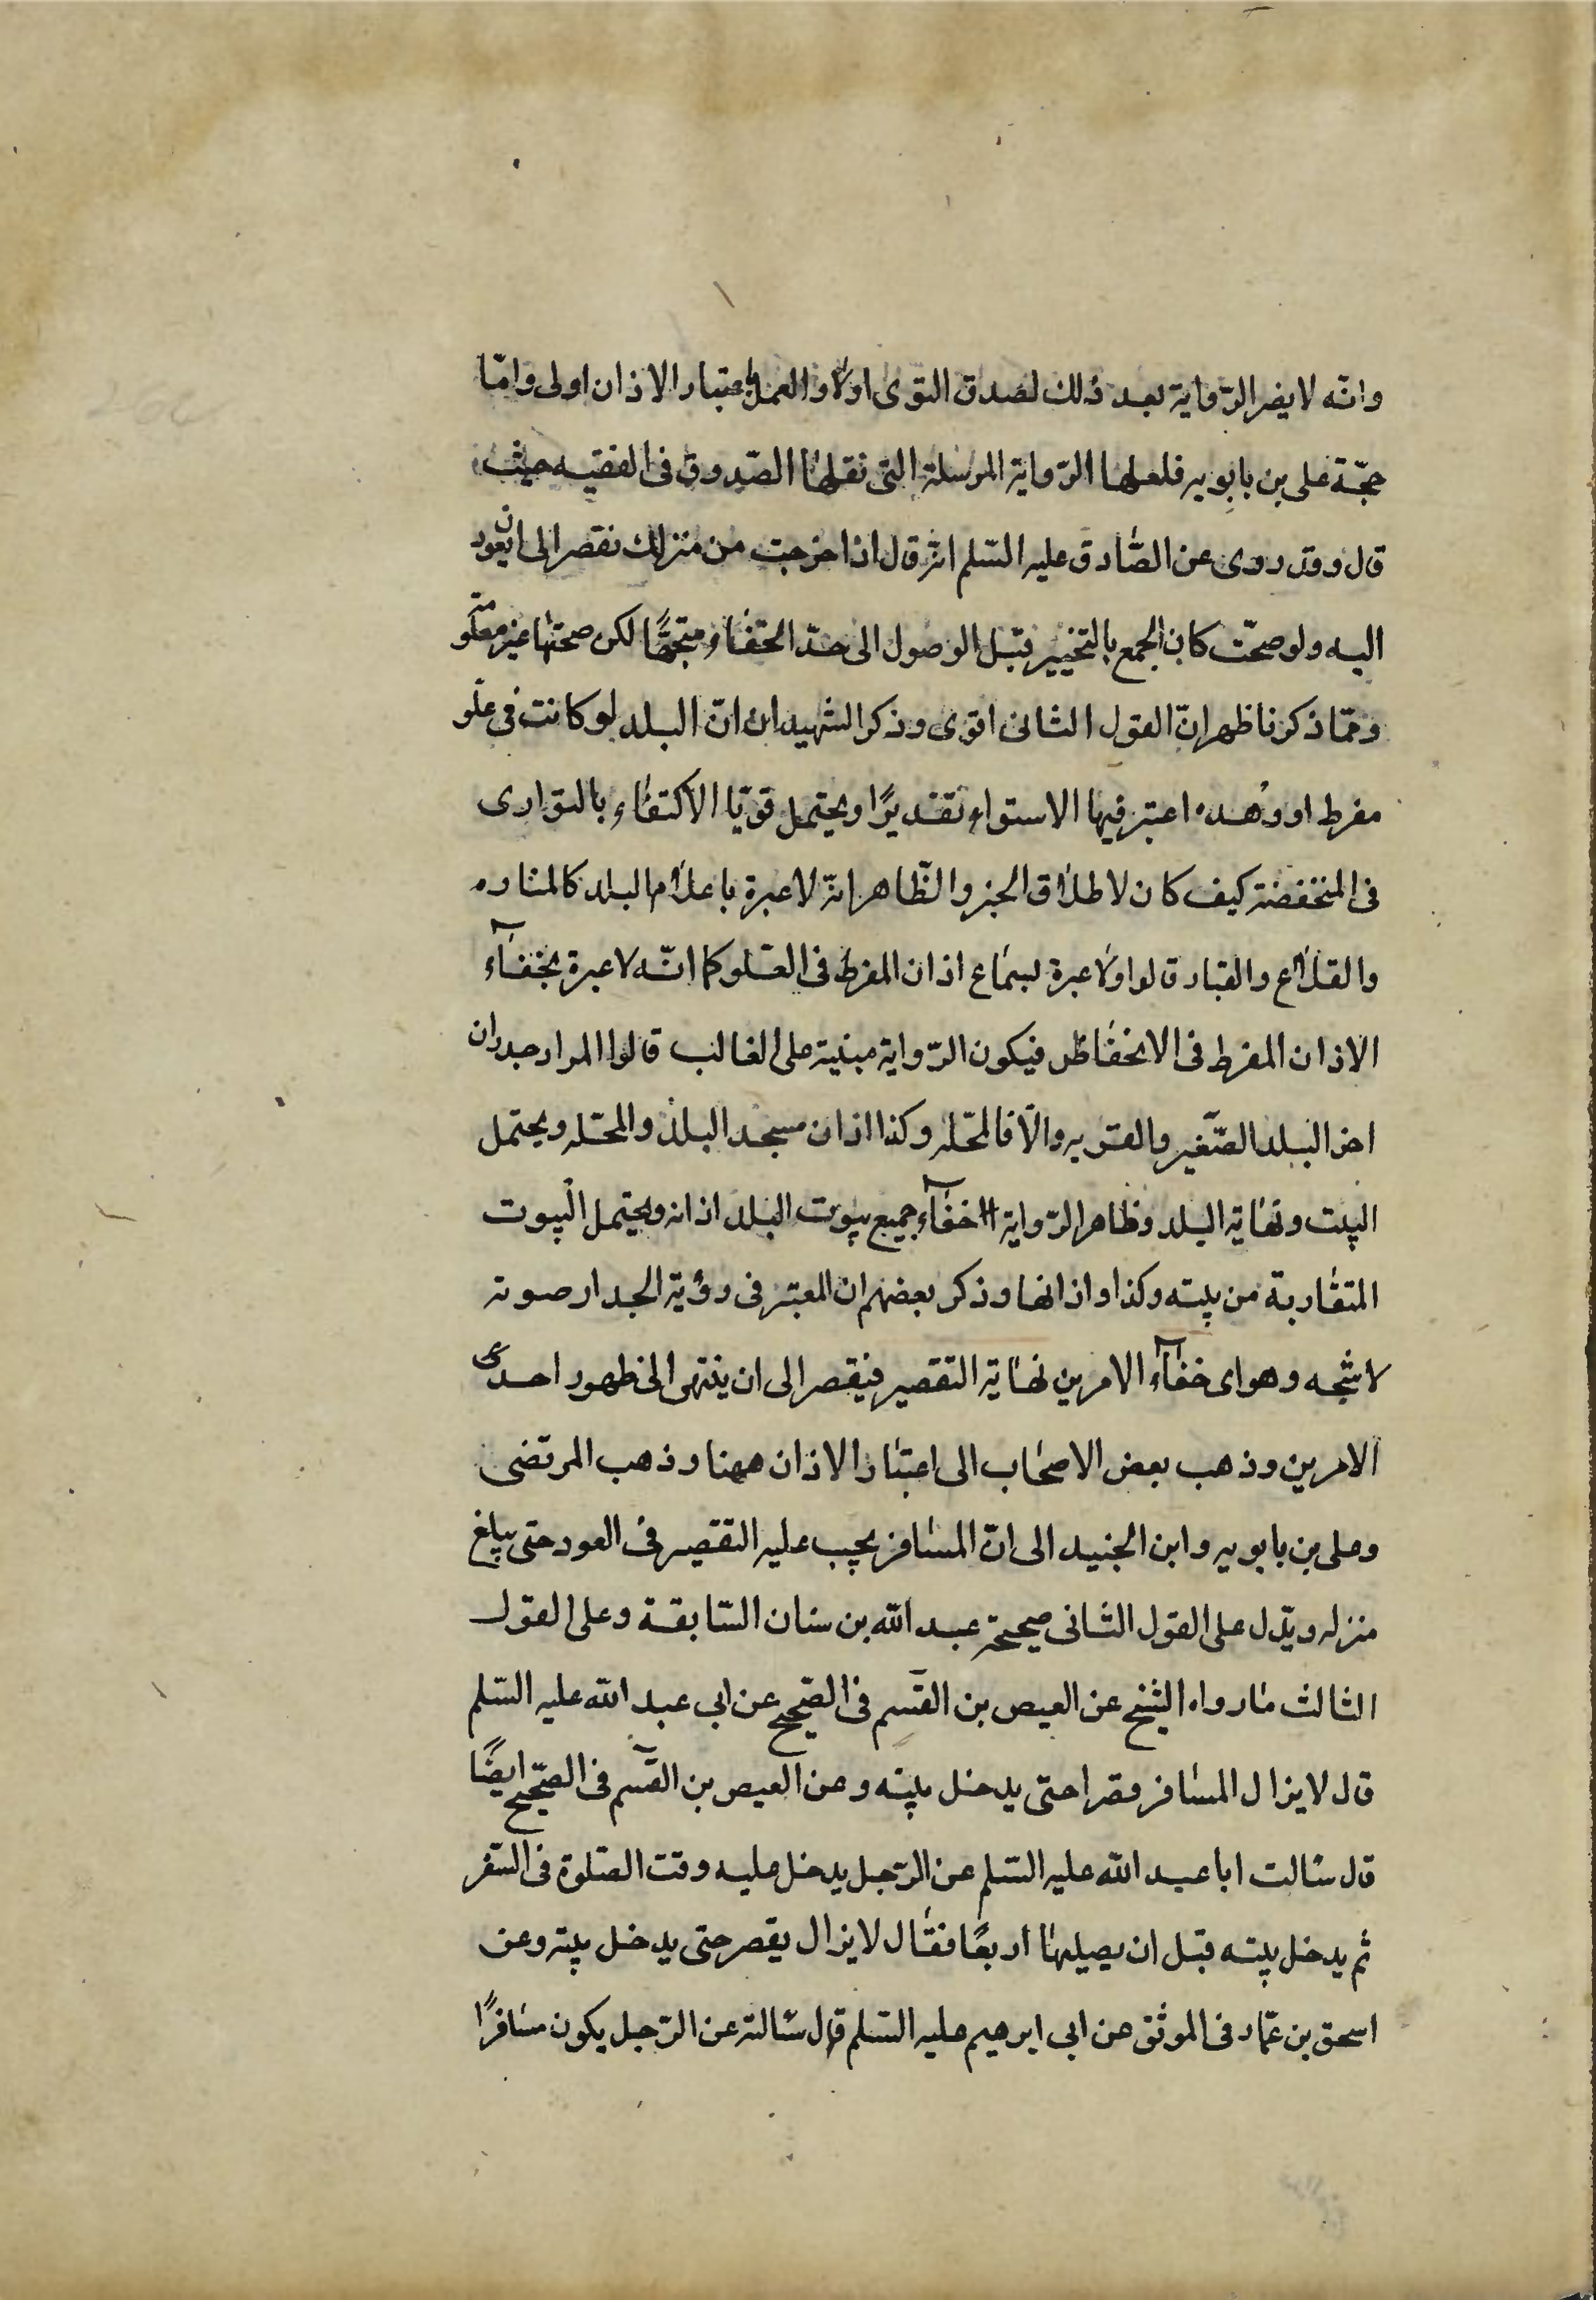 وانّه لا يضر الرّواية بعد ذلك لصدق التوى اولا والعمل باعتبار الاذان اولى وامّا
حجّة على بن بابويه فلعلها الرّواية المرسلة التى نقلها الصّدوق فى الفقيه حيث
قال وقد روى عن الصّادق عليه السّلم انه قال اذا خرجت من منزلك فقصر الى ان تعود
اليه ولو صحّت كان الجمع بالتخيير قبل الوصول الى حدّ الخفاء متجهًا لكن صحتها غير معلومة
وممّا ذكرنا ظهر انّ القول الثانى اقوى وذكر الشهيد ان انّ البلد لو كانت فى علو
مفرط او وهده اعتبر فيها الاستواء تقديرًا ويحتمل قويّا الاكتفاء بالتوارى
فى المنخفضة كيف كان لاطلاق الخبر والظّاهر انه لا عبرة باعلام البلد كالمناره
والقلاع والقباب قالوا ولا عبرة بسماع اذان المفرط فى العلو كما انّه لا عبرة بخفآء
الاذان المفرط فى الانخفاظ فيكون الرّواية مبنية على الغالب قالوا المراد جدران
اخر البلد الصّغير والقريه والّا فالمحله وكذا اذان مسجد البلد والمحله ويحتمل
البيت ونهاية البلد وظاهر الرّواية خفآء جميع بيوت البلد اذانه ويحتمل البيوت
المتقاربة من بيته وكذا واذانها وذكر بعضهم ان المعتبر فى رؤية الجدار صوته
لا شبحه وهو اى خفآء الامرين نهاية التقصير فيقصر الى ان ينتهى الى ظهور احدى
الامرين وذهب بعض الاصحاب الى اعتبار الاذان ههنا وذهب المرتضى
وعلى بن بابويه وابن الجنيد الى انّ المسافر يجب عليه التقصير فى العود حتى يبلغ
منزله ويدل على القول الثانى صحيحة عبد الله بن سنان السّابقة وعلى القول
الثالث ما رواه الشيخ عن العيص بن القسم فى الصّحيح عن ابى عبد الله عليه السّلم
قال لا يزال المسافر مقصرا حتى يدخل بيته وعن العيص بن القسم فى الصّحيح ايضًا
قال سالت ابا عبد الله عليه السّلم عن الرّجل يدخل عليه وقت الصّلوة فى السّفر
ثم يدخل بيته قبل ان يصليها اربعًا فقال لا يزال يقصر حتى يدخل بيته وعن
اسحق بن عمّار فى الموثق عن ابى ابرهيم عليه السّلم قال سالته عن الرّجل يكون مسافرًا